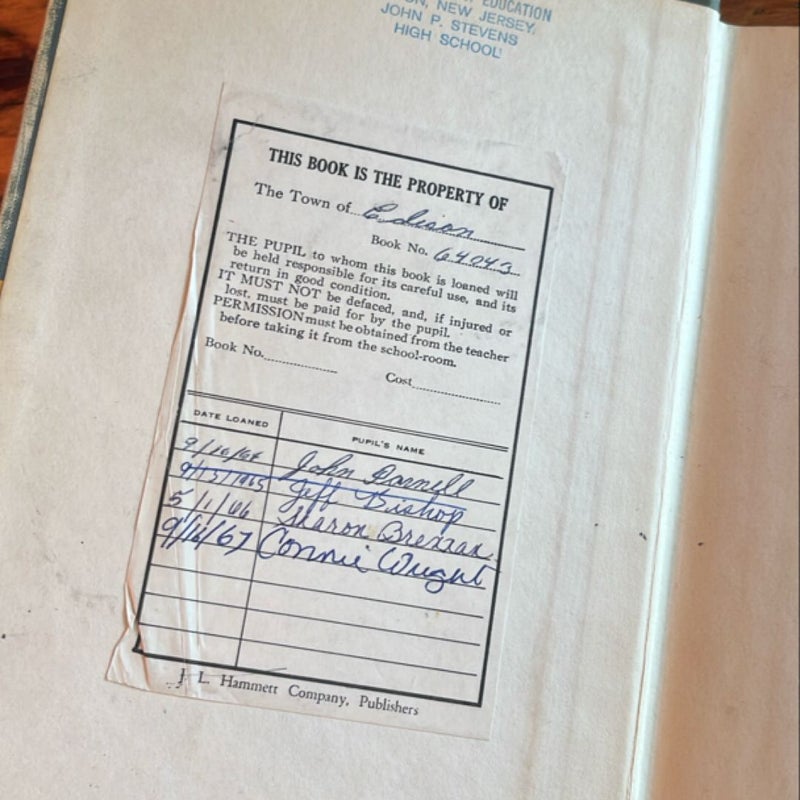 EDUCATION
NEW JERSEY,
JOHN P. STEVENS
HIGH SCHOOL
THIS BOOK IS THE PROPERTY OF
The Town of Edison
Book No. 64043
THE PUPIL to whom this book is loaned will
be held responsible for its careful use, and its
return in good condition.
IT MUST NOT be defaced, and, if injured or
lost, must be paid for by the pupil.
PERMISSION must be obtained from the teacher
before taking it from the school-room.
Book No.
Cost
DATE LOANED PUPIL'S NAME
9/10/64 John Darnell
9/15/1965 Jeff Bishop
5/1/66 Sharon Brennan
9/14/67 Connie Wright
J. L. Hammett Company, Publishers